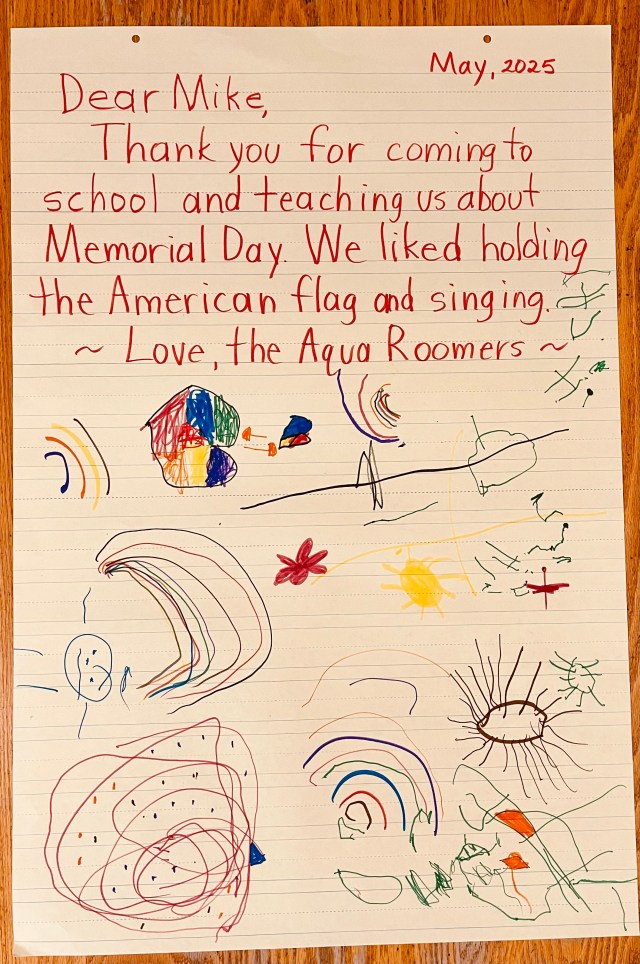 May, 2025
Dear Mike,
Thank you for coming to
school and teaching us about
Memorial Day. We liked holding
the American flag and singing.
~ Love, the Aqua Roomers ~